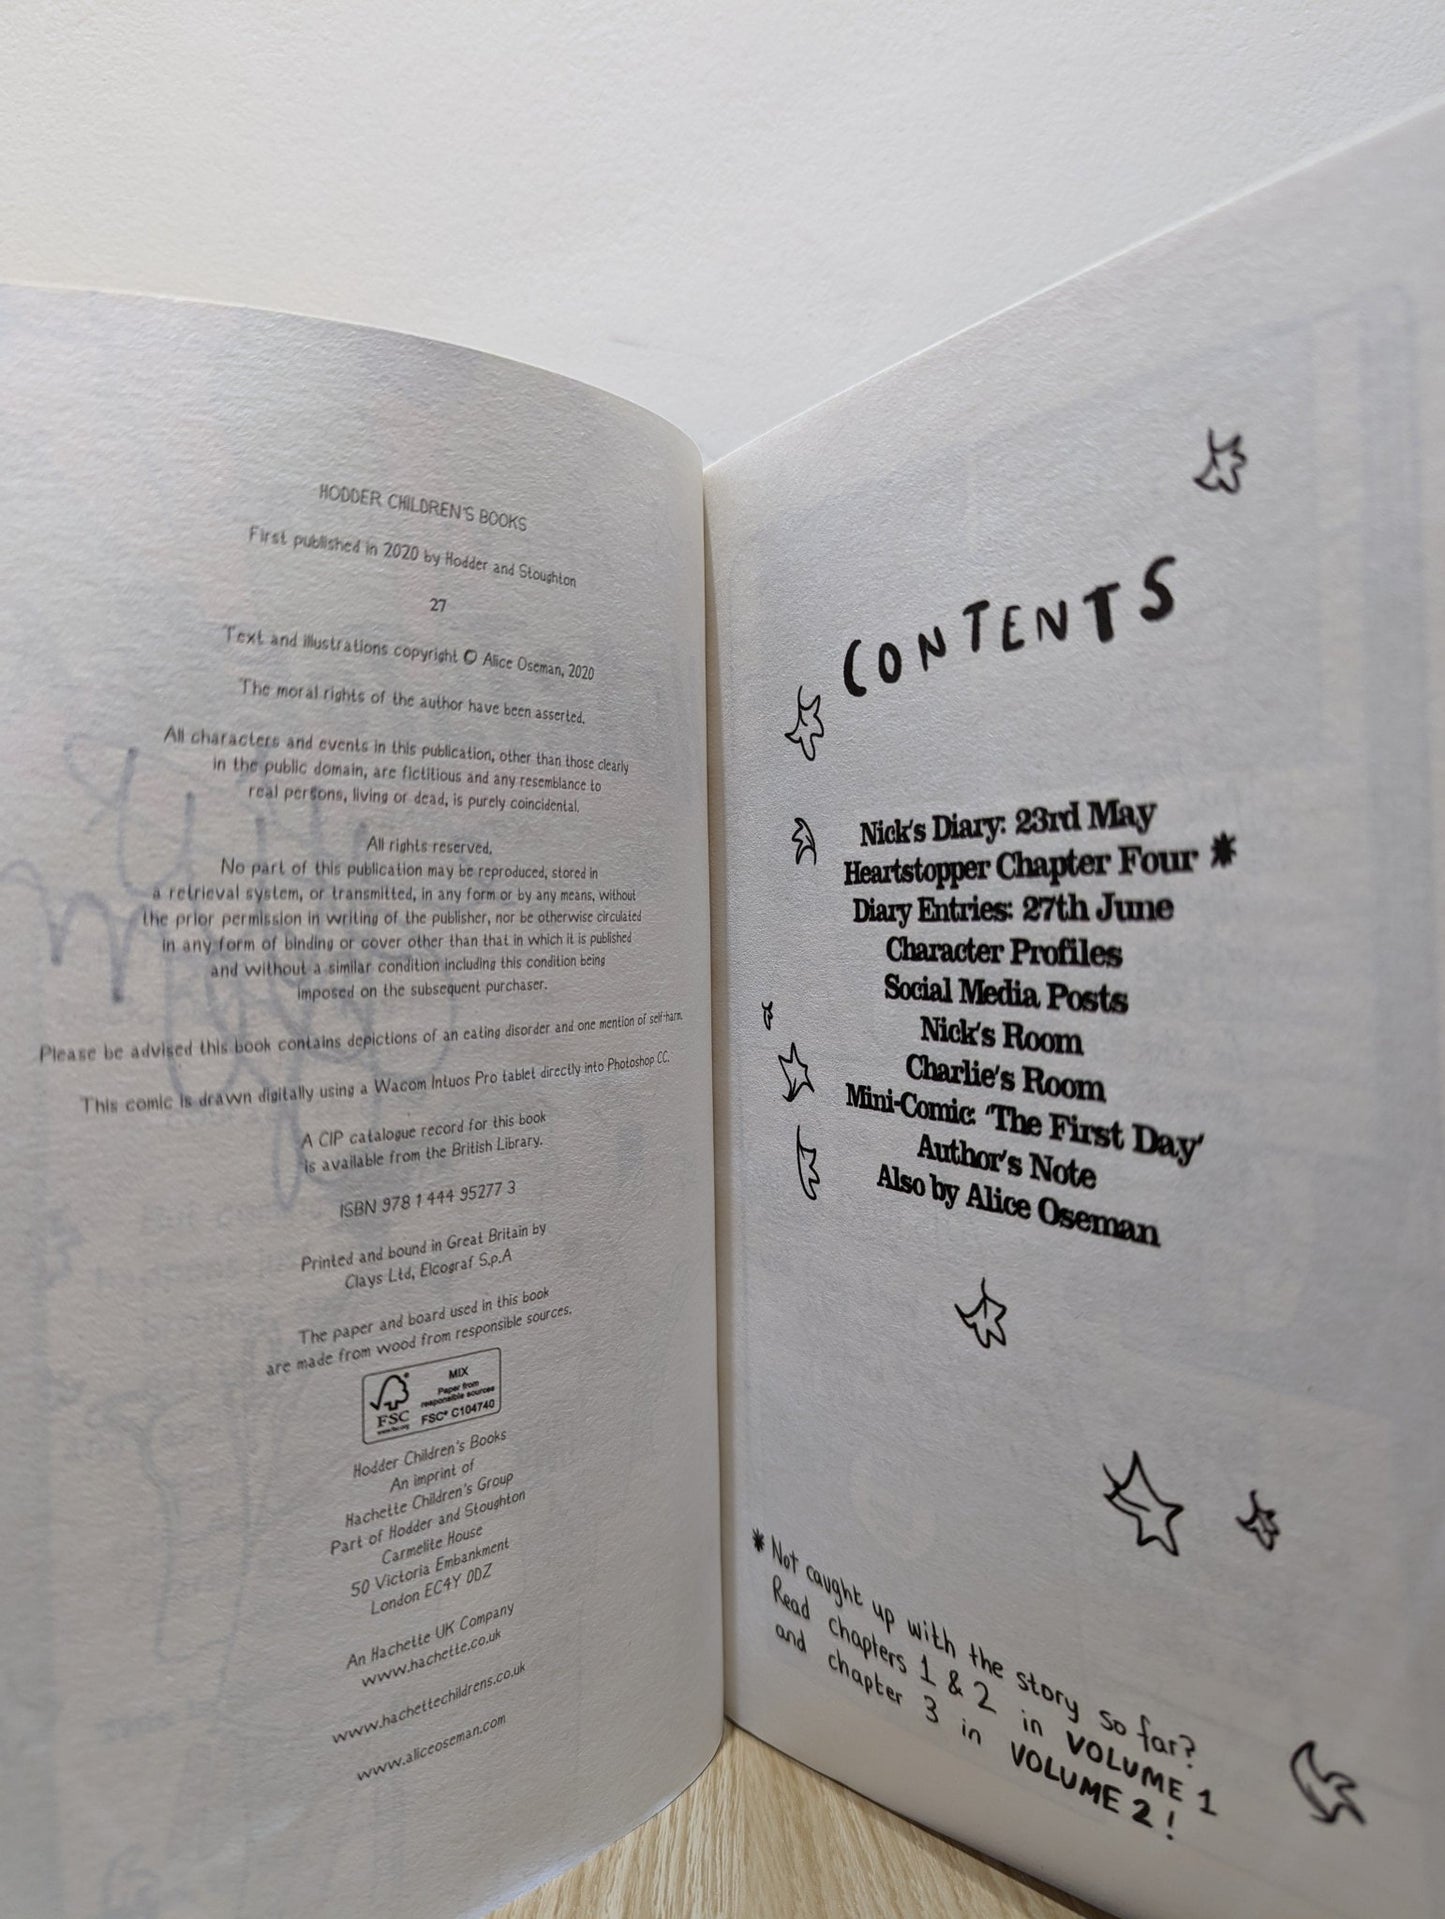 HODDER CHILDREN'S BOOKS
First published in 2020 by Hodder and Stoughton
27
Text and illustrations copyright © Alice Oseman, 2020
The moral rights of the author have been asserted.
All characters and events in this publication, other than those clearly
in the public domain, are fictitious and any resemblance to
real persons, living or dead, is purely coincidental.
All rights reserved.
No part of this publication may be reproduced, stored in
a retrieval system, or transmitted, in any form or by any means, without
the prior permission in writing of the publisher, nor be otherwise circulated
in any form of binding or cover other than that in which it is published
and without a similar condition including this condition being
imposed on the subsequent purchaser.
Please be advised this book contains depictions of an eating disorder and one mention of self-harm.
This comic is drawn digitally using a Wacom Intuos Pro tablet directly into Photoshop CC.
A CIP catalogue record for this book
is available from the British Library.
ISBN 978 1 444 95277 3
Printed and bound in Great Britain by
Clays Ltd, Elcograf S.p.A
The paper and board used in this book
are made from wood from responsible sources.
FSC
www.fsc.org
MIX
Paper from
responsible sources
FSC® C104740
Hodder Children's Books
An imprint of
Hachette Children's Group
Part of Hodder and Stoughton
Carmelite House
50 Victoria Embankment
London EC4Y 0DZ
An Hachette UK Company
www.hachette.co.uk
www.hachettechildrens.co.uk
www.aliceoseman.com
CONTENTS
Nick's Diary: 23rd May
Heartstopper Chapter Four *
Diary Entries: 27th June
Character Profiles
Social Media Posts
Nick's Room
Charlie's Room
Mini-Comic: 'The First Day'
Author's Note
Also by Alice Oseman
* Not caught up with the story so far?
Read chapters 1 & 2 in VOLUME 1
and chapter 3 in VOLUME 2!